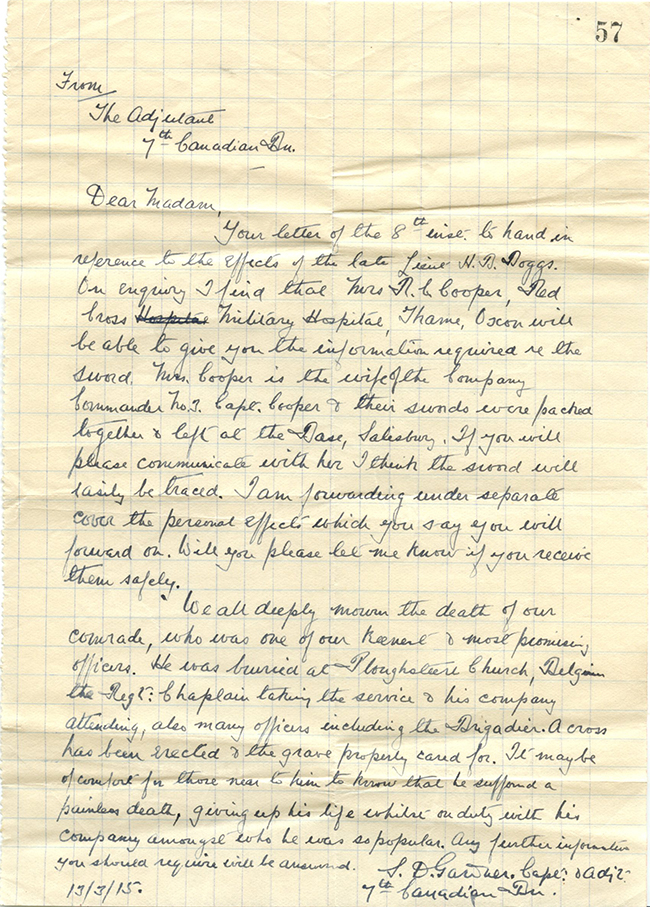 57
From
The Adjutant
7th Canadian Bn.
Dear Madam,
Your letter of the 8th inst. to hand in
reference to the effects of the late Lieut H. B. Boggs.
On enquiry I find that Mrs R. C. Cooper, Red
Cross Hospital Military Hospital, Thame, Oxon will
be able to give you the information required re the
sword. Mrs. Cooper is the wife of the Company
Commander No. Capt. Cooper & their swords were packed
together & left at the Base, Salisbury. If you will
please communicate with her I think the sword will
easily be traced. I am forwarding under separate
cover the personal effects which you say you will
forward on. Will you please let me know if you receive
them safely.
We all deeply mourn the death of our
comrade, who was one of our keenest & most promising
officers. He was burried at Ploughsteert Church, Belgium
the Regt: Chaplain taking the service & his company
attending, also many officers including the Brigadier. A cross
has been erected & the grave properly cared for. It may be
of comfort for those near to him to know that he suffered a
painless death, giving up his life whilst on duty with his
company amongst who he was so popular. Any further information
you should require will be answered.
S. D. Gardner. Capt. & Adjt.
13/3/15. 7th Canadian Bn.